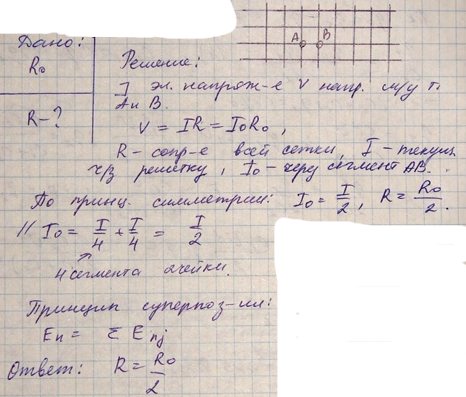 A B
Дано:
R₀
R-?
Решение:
] эл. напряж-е V напр. м/у т.
A и B.
V = IR = I₀R₀,
R - сопр-е всей сетки, I - текущ.
ч/з решетку, I₀ - через сегмент AB.
По принц. симметрии: I₀ = I/2, R = R₀/2.
// I₀ = I/4 + I/4 = I/2
4 сегмента ячейки.
Принцип суперпоз-ии:
Eп = Σ Eпj
Ответ: R = R₀/2